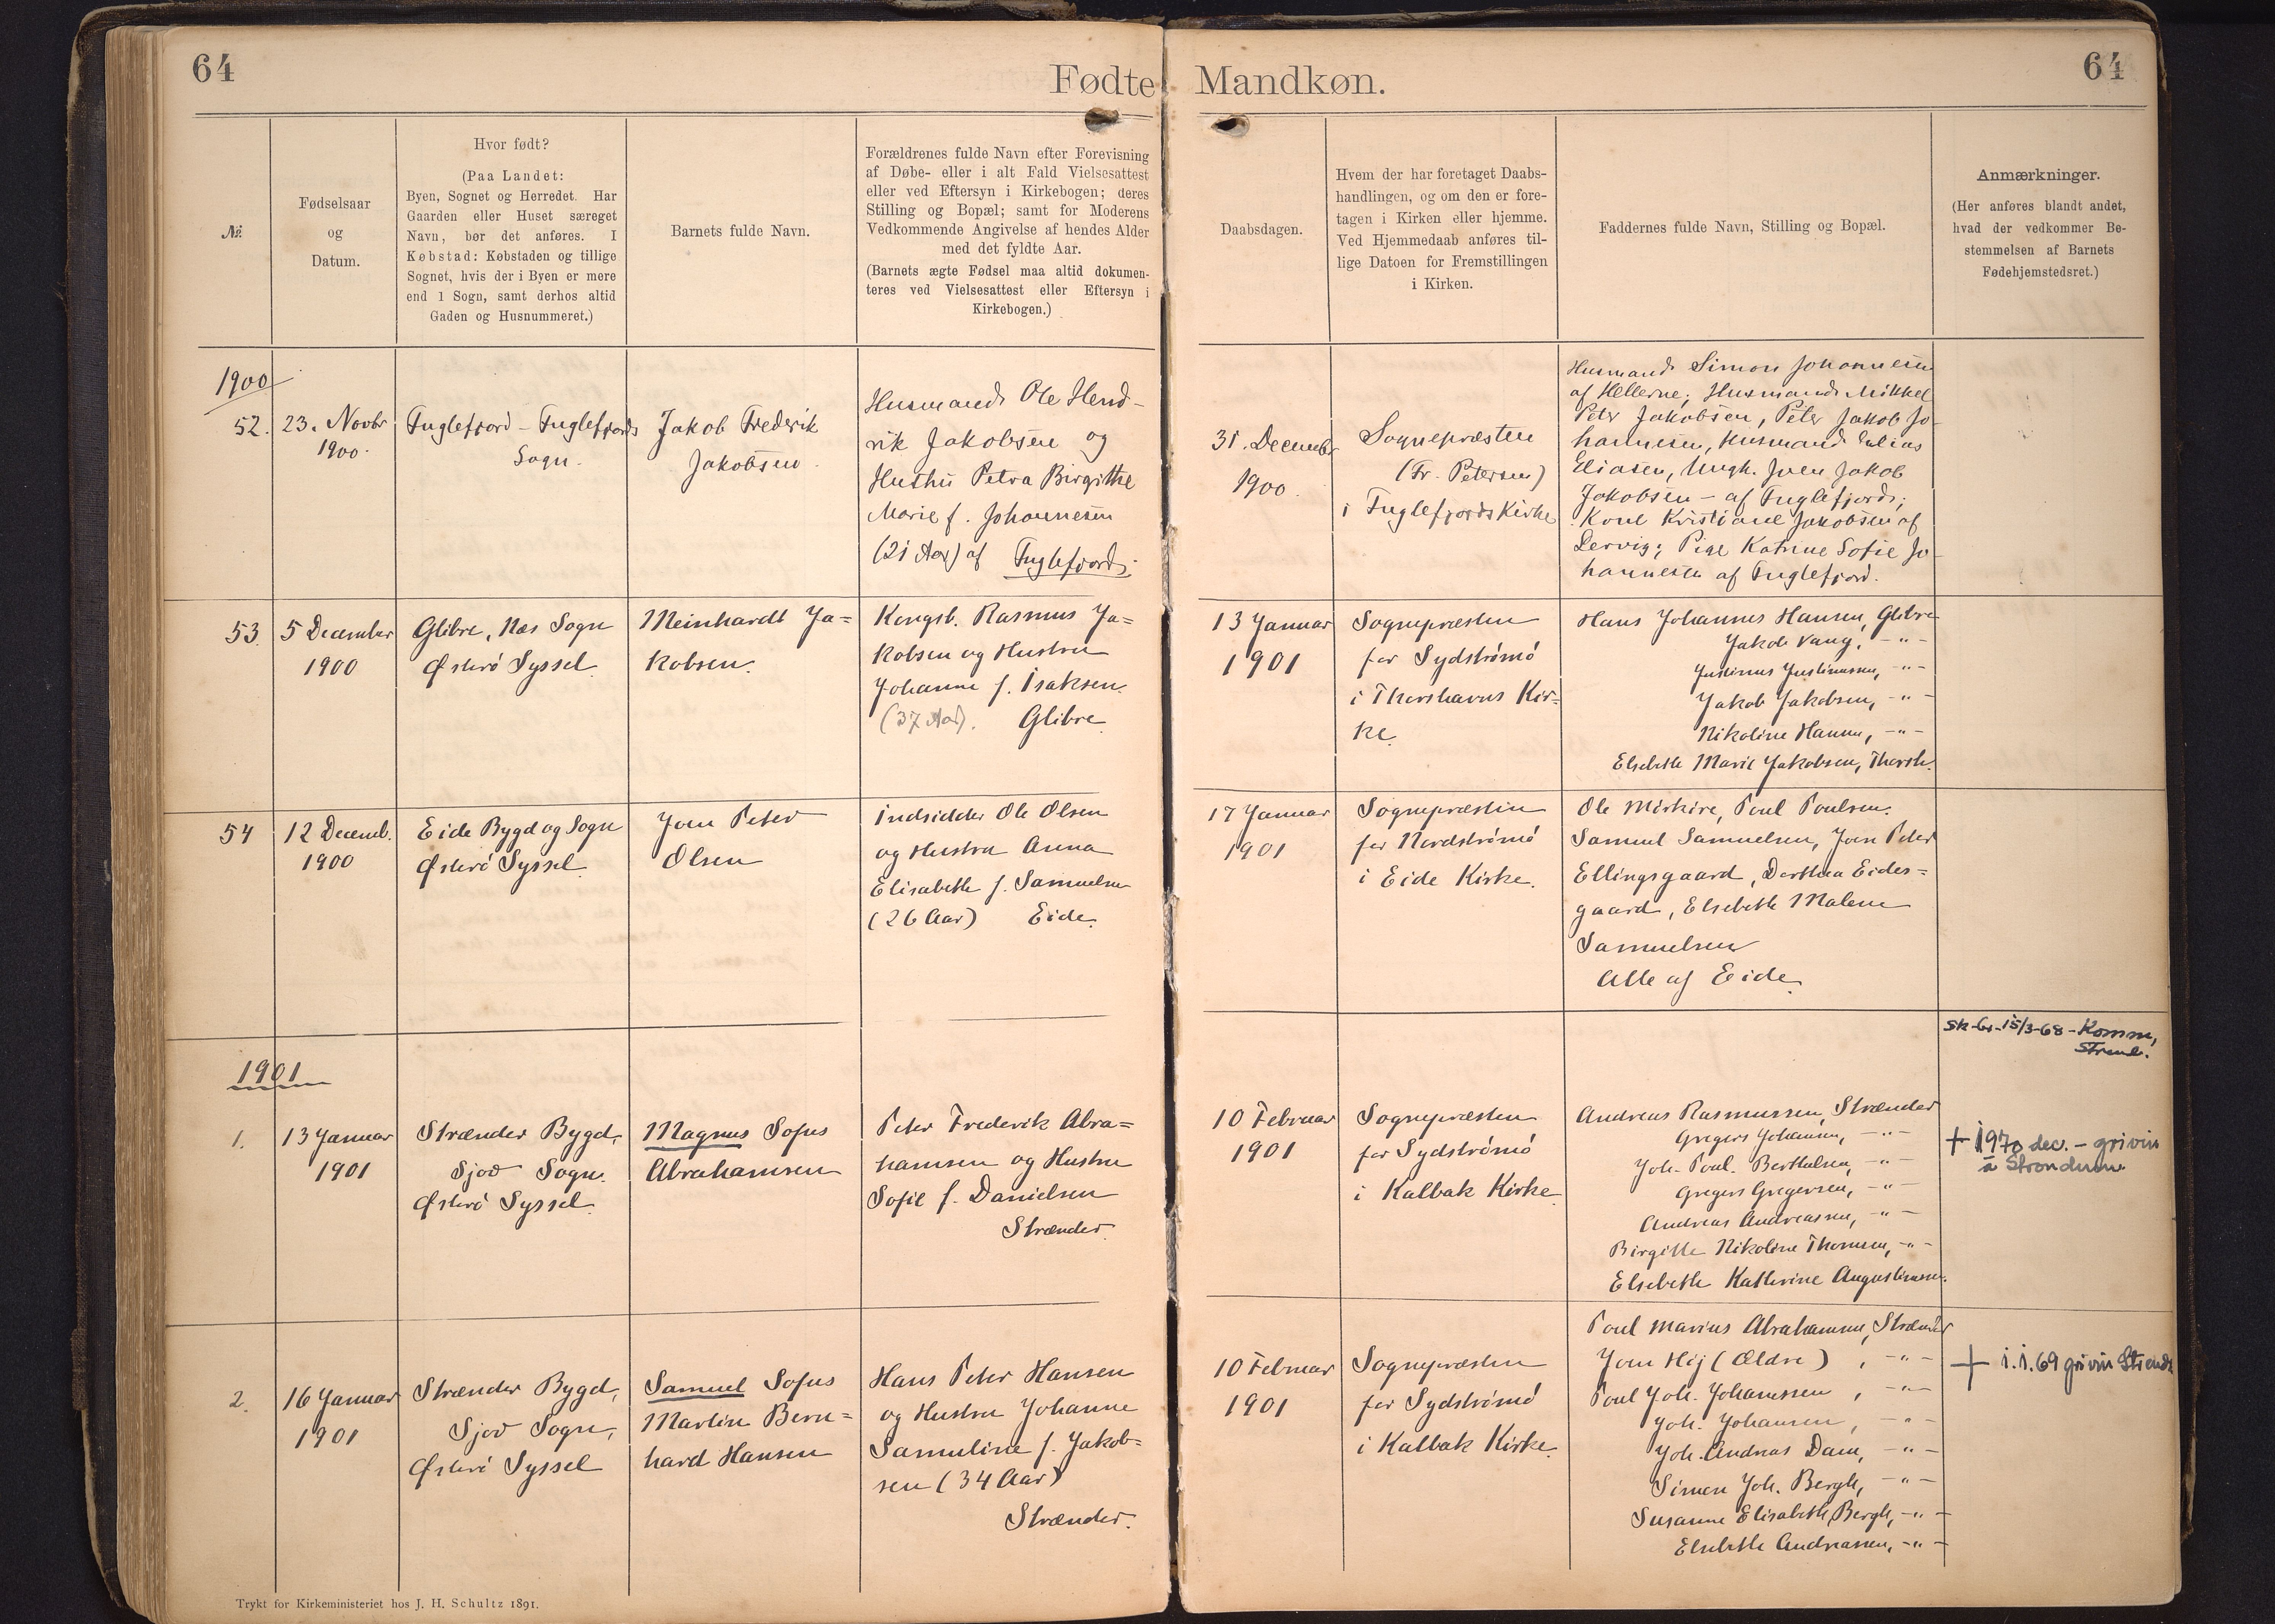 64
Fødte Mandkøn.
64
№.
Fødselsaar
og
Datum.
Hvor født?
(Paa Landet:
Byen, Sognet og Herredet. Har
Gaarden eller Huset særeget
Navn, bør det anføres. I
Købstad: Købstaden og tillige
Sognet, hvis der i Byen er mere
end 1 Sogn, samt derhos altid
Gaden og Husnummeret.)
Barnets fulde Navn.
Forældrenes fulde Navn efter Forevisning
af Døbe- eller i alt Fald Vielsesattest
eller ved Eftersyn i Kirkebogen; deres
Stilling og Bopæl; samt for Moderens
Vedkommende Angivelse af hendes Alder
med det fyldte Aar.
(Barnets ægte Fødsel maa altid dokumen-
teres ved Vielsesattest eller Eftersyn i
Kirkebogen.)
Daabsdagen.
Hvem der har foretaget Daabs-
handlingen, og om den er fore-
tagen i Kirken eller hjemme.
Ved Hjemmedaab anføres til-
lige Datoen for Fremstillingen
i Kirken.
Faddernes fulde Navn, Stilling og Bopæl.
Anmærkninger.
(Her anføres blandt andet,
hvad der vedkommer Be-
stemmelsen af Barnets
Fødehjemstedsret.)
1900
52.
23. Novbr
1900.
Fuglefjord - Fuglefjords
Sogn.
Jakob Frederik
Jakobsen.
Husmand Ole Hend-
rik Jakobsen og
Hustru Petra Birgithe
Marie f. Johannesen
(21 Aar) af Fuglefjord;
31. Decembr
1900.
Sognepræsten
(Fr. Petersen)
i Fuglefjords Kirke
Husmand Simon Johannesen
af Hellerne; Husmand Mikkel
Peter Jakobsen, Peter Jakob Jo-
hannesen, Husmand Elias
Eliasen, Ungk. Joen Jakob
Jakobsen - af Fuglefjord;
Kone Kristiane Jakobsen af
Lervig; Pige Katrine Sofie Jo-
hannesen af Fuglefjord.
53.
5 December
1900
Glibre, Næs Sogn
Østerö Syssel.
Meinhardt Ja=
kobsen.
Kongsb. Rasmus Ja=
kobsen og Hustru
Johanne f. Isaksen.
(37 Aar). Glibre.
13 Januar
1901
Sognepræsten
for Sydströmö
i Thorshavns Kir=
ke.
Hans Johannes Hansen, Glibre
Jakob Vang, -"-
Justinus Justinussen, -"-
Jakob Jakobsen, -"-
Nikoline Hansen, -"-
Elsebeth Marie Jakobsen, Thorsh.
54
12 Decemb.
1900
Eide Bygd og Sogn
Østerö Syssel.
Joen Peter
Olsen
Indsidder Ole Olsen
og Hustru Anna
Elisabeth f. Samuelsen
(26 Aar) Eide.
17 Januar
1901
Sognepræsten
for Nordströmö
i Eide Kirke.
Ole Mörköre, Poul Poulsen.
Samuel Samuelsen, Joen Peter
Ellingsgaard, Dorthea Eides=
gaard, Elsebeth Malene
Samuelsen
Alle af Eide.
1901
1.
13 Januar
1901
Strænder Bygd,
Sjov Sogn.
Østerö Syssel.
Magnus Sofus
Abrahamsen
Peter Frederik Abra=
hamsen og Hustru
Sofie f. Danielsen
Strænder.
10 Februar
1901
Sognepræsten
for Sydströmö
i Kalbak Kirke.
Andreas Rasmussen, Strænder
Gregers Johansen, -"-
Joh. Poul. Berthelsen, -"-
Gregers Gregersen, -"-
Andreas Andreassen, -"-
Birgitte Nikoline Thomsen, -"-
Elsebeth Kathrine Augustinussen.
Sk-Gr-15/3-68-Komm,
Strend.
+ 1970 dec. - grivin
á Strondum
2.
16 Januar
1901
Strænder Bygd,
Sjov Sogn,
Østerö Syssel
Samuel Sofus
Martin Bern=
hard Hansen
Hans Peter Hansen
og Hustru Johanne
Samuline f. Jakob=
sen (34 Aar)
Strænder.
10 Februar
1901
Sognepræsten
for Sydströmö
i Kalbak Kirke.
Poul Marius Abrahamsen, Strænder
Joen Höj (Ældre), -"-
Poul Joh. Johannssen, -"-
Joh. Johansen, -"-
Joh. Andreas Dam, -"-
Simen Joh. Bergh, -"-
Susanne Elisabeth Bergh, -"-
Elsebeth Andreassen, -"-
+ 1.1.69 grivin Strendr
Trykt for Kirkeministeriet hos J. H. Schultz 1891.